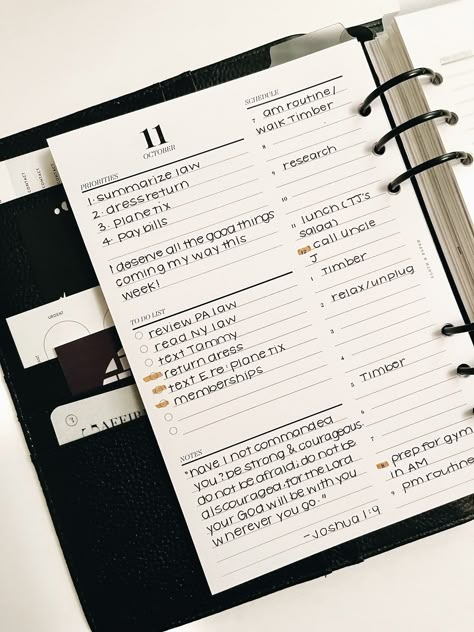 11
OCTOBER
PRIORITIES
1. summarize law
2. dress return
3. plane tix
4. pay bills
I deserve all the good things
coming my way this
week!
TO DO LIST
review PA law
read NY law
text Tammy
return dress
text E re: plane tix
memberships
NOTES
"have I not commanded
you? be strong & courageous.
do not be afraid; do not be
discouraged, for the Lord
your God will be with you
wherever you go."
-Joshua 1:9
SCHEDULE
7 am routine/
walk Timber
8
9 research
10
11 lunch (TJ's
salad)
12 call uncle
J
1 Timber
2 relax/unplug
3
4
5 Timber
6
7
8 prep for gym
in AM
9 pm routine
URGENT
CONTACT
CONTACT